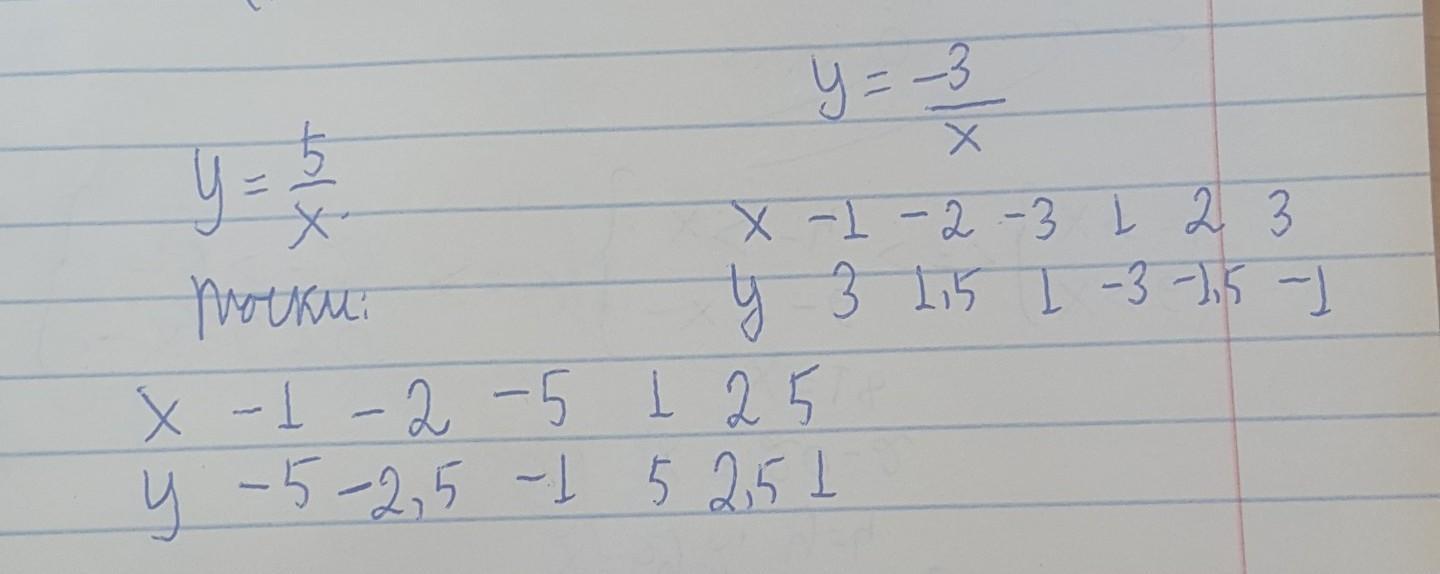 y = -3/x
y = 5/x
x -1 -2 -3 1 2 3
точки:
y 3 1,5 1 -3 -1,5 -1
x -1 -2 -5 1 2 5
y -5 -2,5 -1 5 2,5 1